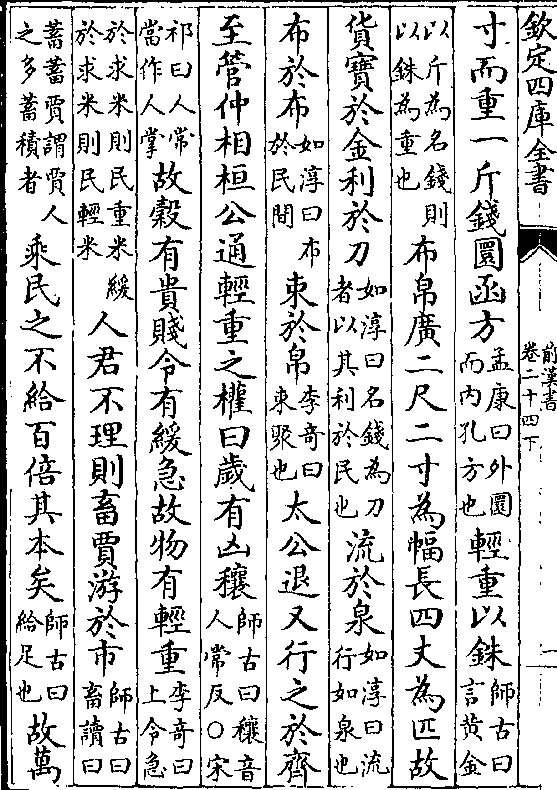 欽定四庫全書
前漢書
卷二十四下
一
寸而重一斤錢圜函方孟康曰外圜而内孔方也輕重以銖師古曰言黄金
以斤為名錢則以銖為重也布帛廣二尺二寸為幅長四丈為匹故
貨寶於金利於刀如淳曰名錢為刀者以其利於民也流於泉如淳曰流行如泉也
布於布如淳曰布於民間束於帛李奇曰束聚也太公退又行之於齊
至管仲相桓公通輕重之權曰歲有凶穰師古曰穰音人常反○宋
祁曰人常當作人掌故穀有貴賤令有緩急故物有輕重李奇曰上令急
於求米則民重米緩於求米則民輕米人君不理則畜賈游於市師古曰畜讀曰
蓄蓄賈謂賈人之多蓄積者乘民之不給百倍其本矣師古曰給足也故萬